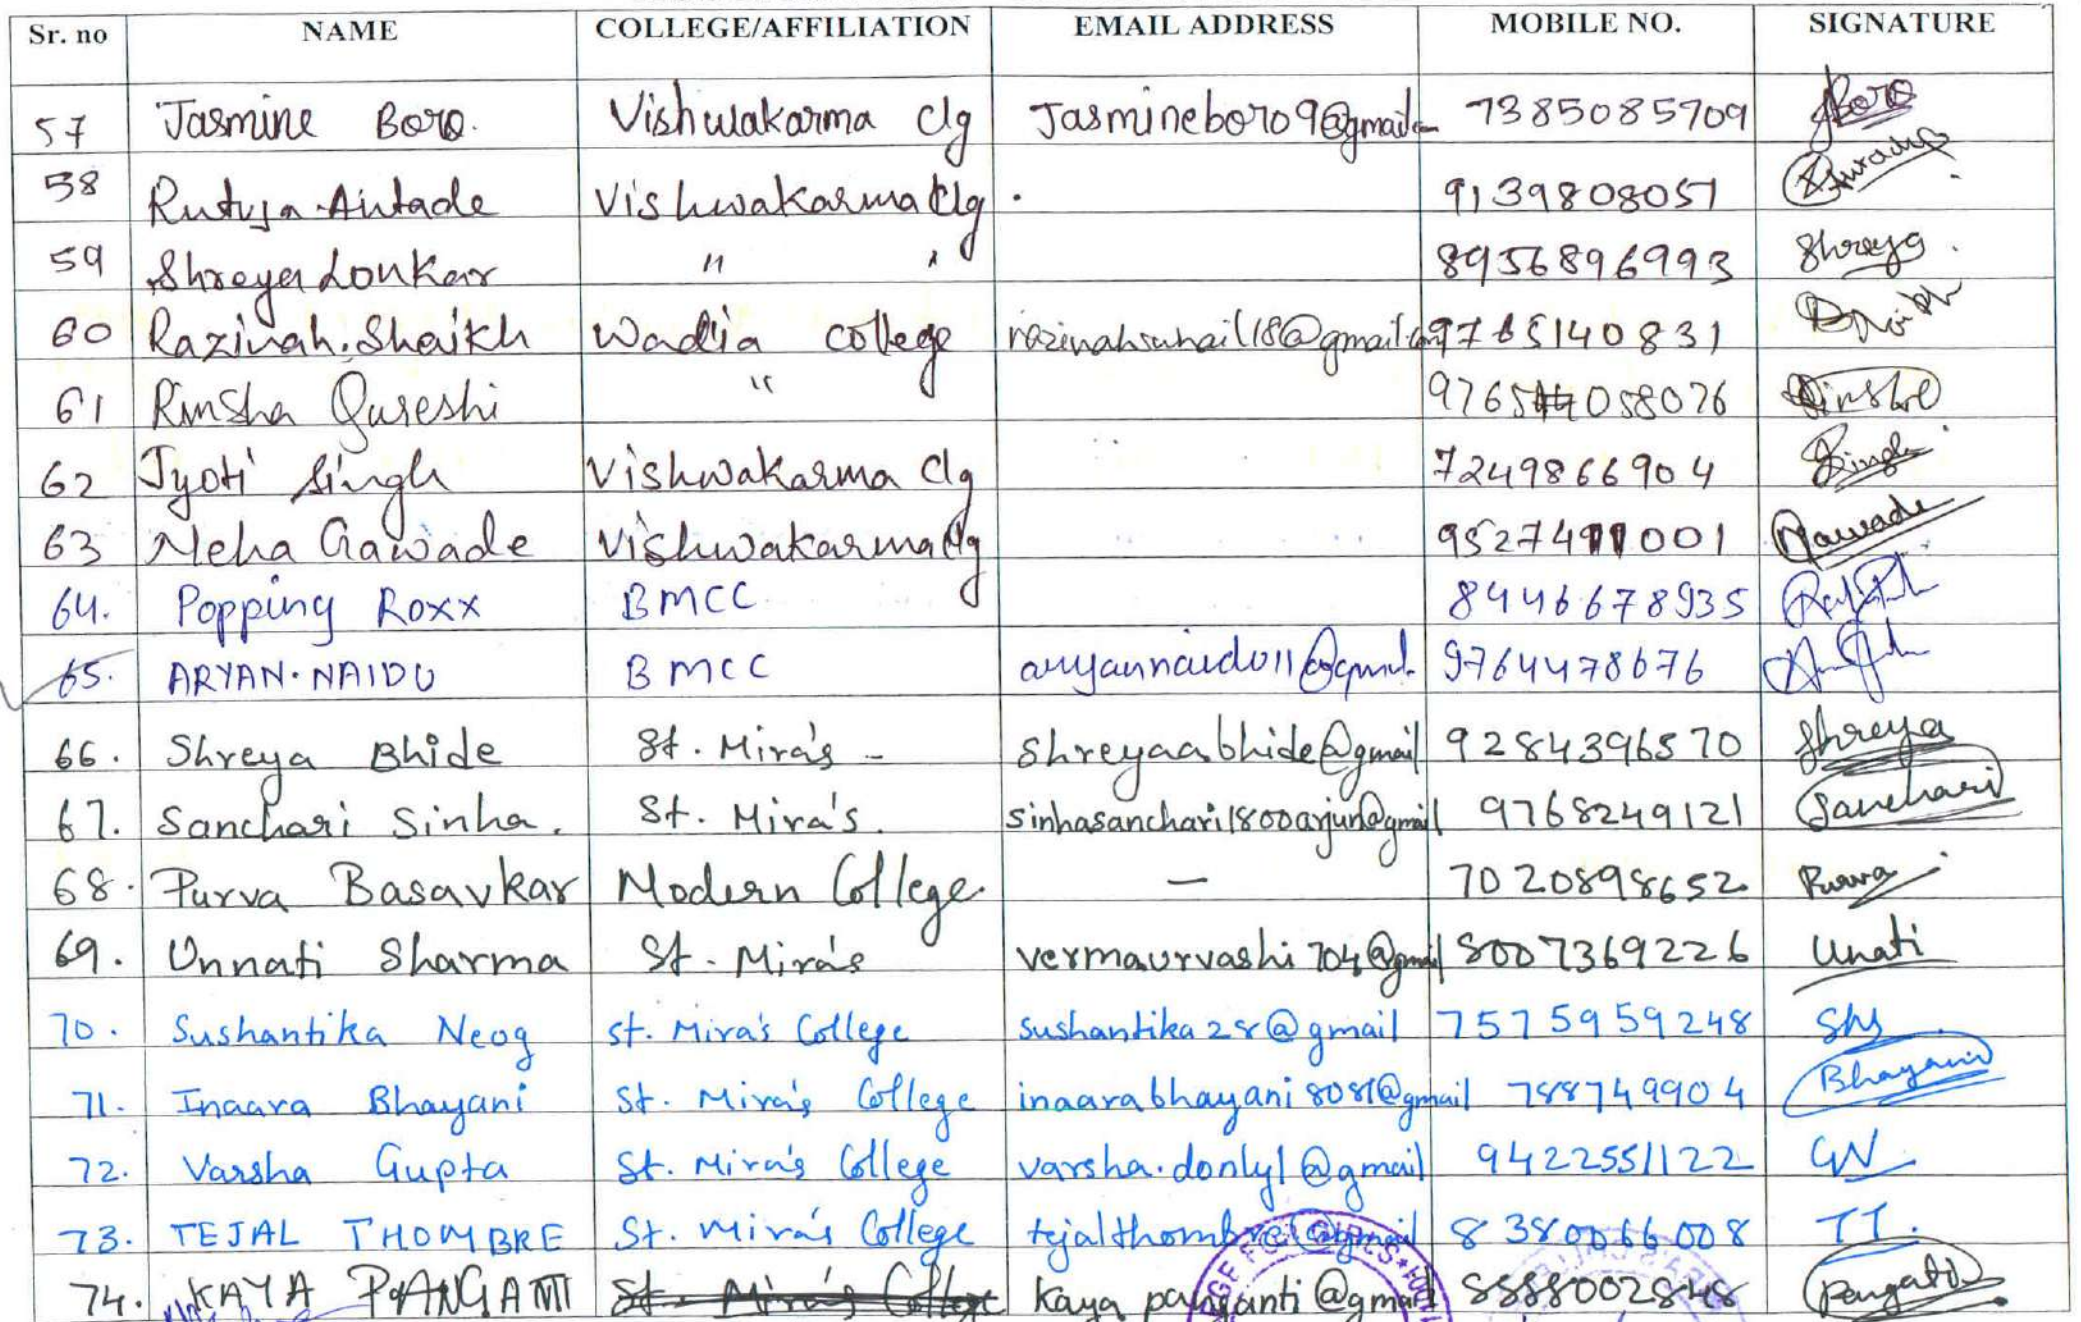 Sr. no NAME COLLEGE/AFFILIATION EMAIL ADDRESS MOBILE NO. SIGNATURE
57 Jasmine Boro. Vishwakarma clg Jasmineboro9@gmail 7385085709 JBoro
58 Rutuja Autade Vishwakarma Clg 9139808051
59 Shreya Lonkar " " 8956896993 Shreya
60 Razinah.Shaikh Wadia college razinahsuhail18@gmail.com 9765140831
61 Rinsha Qureshi " 9765 058076
62 Jyoti Singh Vishwakarma clg 7249866904 Singh
63 Neha Gawade Vishwakarma clg 9527411001 Gawade
64. Popping Roxx BMCC 8446678935
65. ARYAN.NAIDU BMCC aryannaidu11@gmail. 9764478676
66. Shreya Bhide St. Mira's - Shreyaabhide@gmail 9284396570 Shreya
67. Sanchari Sinha. St. Mira's. sinhasanchari1800arjun@gmail 9768249121 Sanchari
68. Purva Basavkar Modern College. — 7020898652 Purva
69. Unnati Sharma St. Mira's vermaurvashi704@gmail 8007369226 Unati
70. Sushantika Neog St. Mira's College sushantika28@gmail 7575959248
71. Inaara Bhayani St. Mira's College inaarabhayani8081@gmail 788749904 Bhayani
72. Varsha Gupta St. Mira's College varsha.donly1@gmail 9422551122 GV
73. TEJAL THOMBRE St. Mira's College tejalthombre@gmail 8380066008 TT.
74. KAYA PANGANTI St. Mira's College kaya panganti@gmail 8888002848